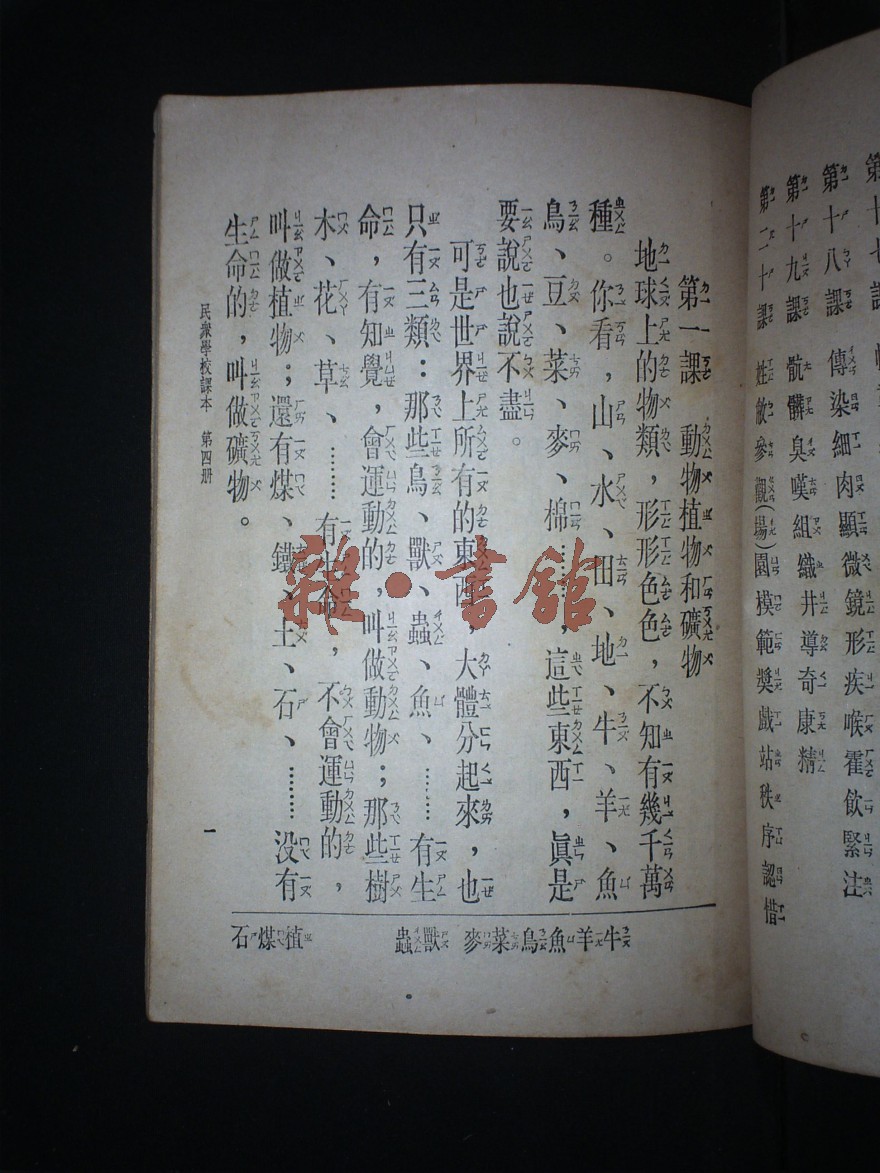 第十八課 傳染細肉顯微鏡形疾喉霍飲緊注
第十九課 骯髒臭嘆組織井導奇康精
第二十課 姓敵參觀(場)園模範獎戲站秩序認惜
第一課 動物植物和礦物
地球上的物類，形形色色，不知有幾千萬
種。你看，山、水、田、地、牛、羊、魚
鳥、豆、菜、麥、棉……，這些東西，眞是
要說也說不盡。
可是世界上所有的東西，大體分起來，也
只有三類：那些鳥、獸、蟲、魚、……有生
命，有知覺，會運動的，叫做動物；那些樹
木、花、草、……有生命，不會運動的，
叫做植物；還有煤、鐵、土、石、……没有
生命的，叫做礦物。
牛羊魚鳥菜麥
獸蟲
植煤石
民衆學校課本 第四册
一
雜·書館